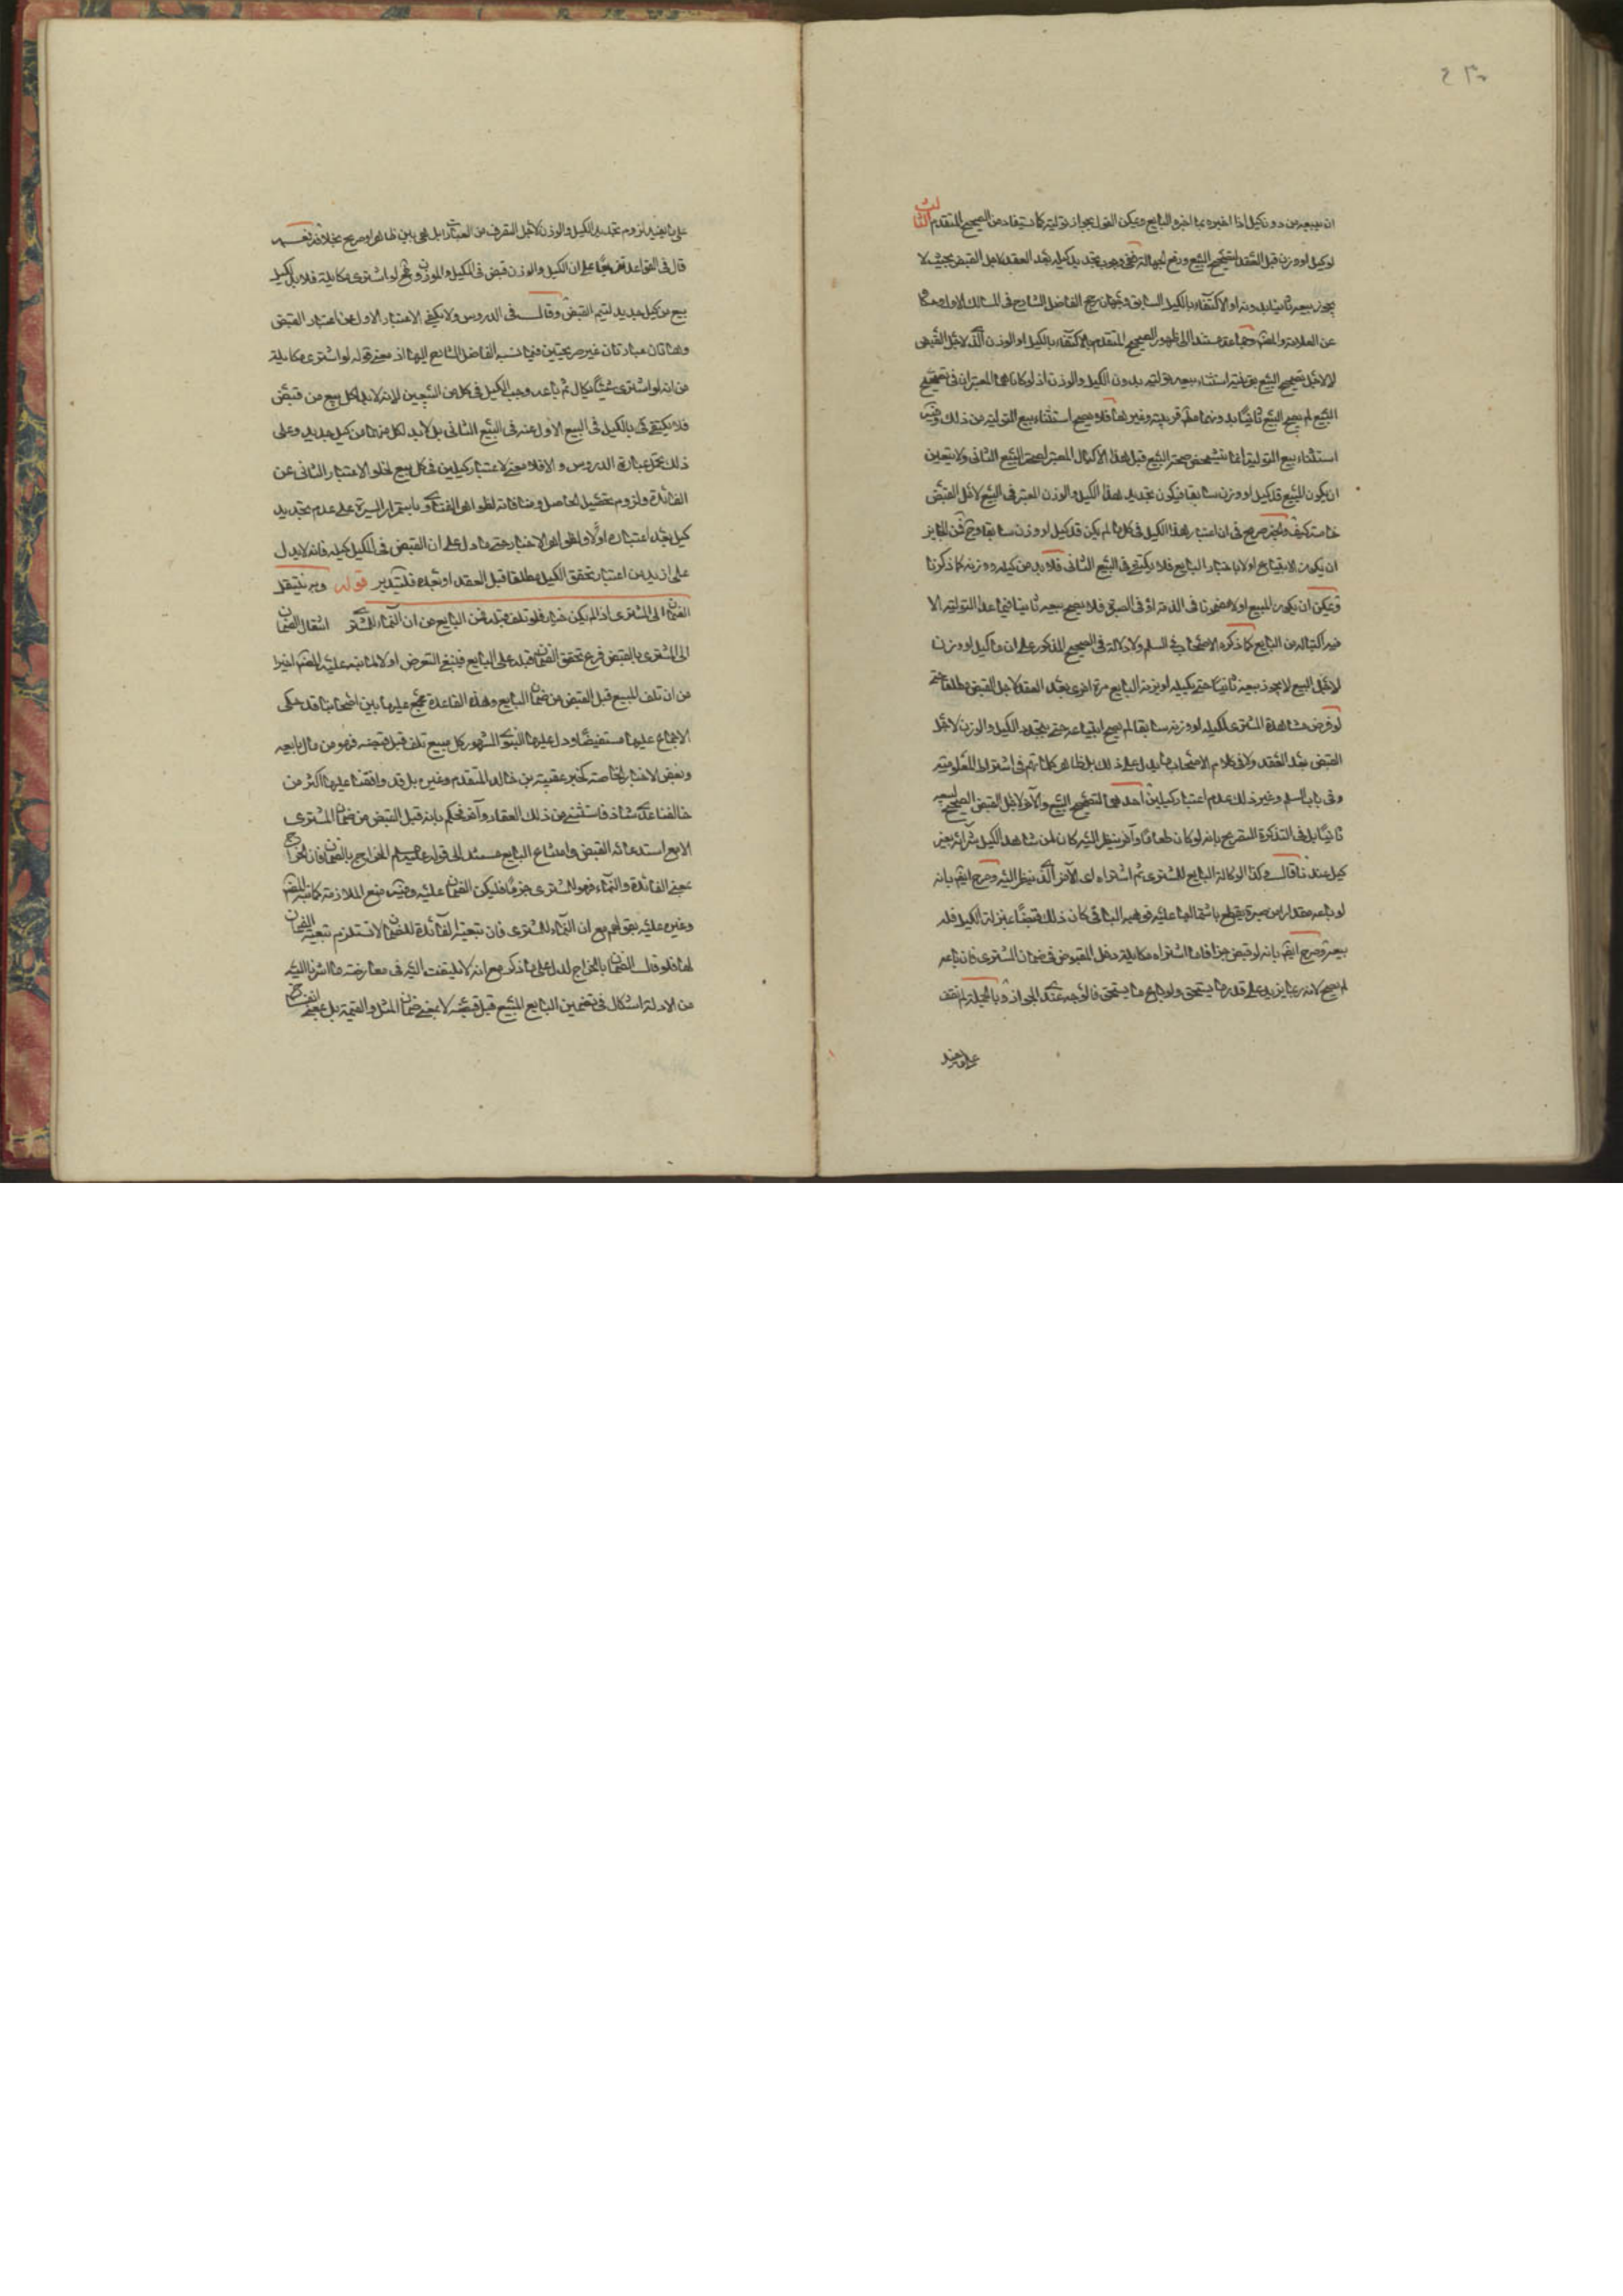 ان يبيعه من دون كيل اذا اخبره بما اخبره البايع ويمكن القول بجواز توليته كما يستفاد من الصحيح المتقدم الثالث
لو كيل او وزن قبل العقد لتصحيح البيع ورفع الجهالة ففي وجوب تجديد كيله بعد العقد لاجل القبض بحيث لا
يجوز بيعه ثانيا بدونه او الاكتفاء بالكيل السابق وجهان رجح الفاضل الشارح في المسالك الاول وحكاه
عن العلامة والمشهور وجماعة مستندا الى ظهور الصحيح المتقدم بالاكتفاء بالكيل او الوزن الذي لاجل القبض
لا لاجل تصحيح البيع بقرينة استثناء بيعه تولية بدون الكيل والوزن اذ لو كانا هما المعتبران في تصحيح
البيع لم يصح البيع ثانيا بدونهما مطلقا تولية وغيرها فلا يصح استثناء بيع التولية من ذلك وفيه
استثناء بيع التولية انما يتمحض صحة البيع قبل هذا الاكتيال المعتبر لصحة البيع الثاني ولا يتعين
ان يكون المبيع قد كيل او وزن سابقا فيكون تجديد هذا الكيل والوزن المعتبر في البيع لاجل القبض
خاصة كيف والخبر صريح في ان اعتبار هذا الكيل في كل ما لم يكن قد كيل او وزن سابقا وح فمن الجايز
ان يكون الابتياع اولا باخبار البايع فلا يكتفي في البيع الثاني فلا بد من كيله ووزنه كما ذكرنا
ويمكن ان يكون المبيع اولا مضمونا في الذمة او في الصبرة فلا يصح بيعه ثانيا فيما عدا التولية الا
بعد اكتياله من البايع كما ذكره الاصحاب في السلم ولا دلالة في الصحيح المذكور على ان ما كيل او وزن
لاجل البيع لا يجوز بيعه ثانيا حتى يكيله او يزنه البايع مرة اخرى بعد العقد لاجل القبض مطلقا حتى
لو فرض مشاهدة المشتري لكيله او وزنه سابقا لم يصح ابتياعه حتى يتجدد الكيل والوزن لاجل
القبض بعد العقد ولا في كلام الاصحاب ما يدل على ذلك بل ظاهر كلماتهم في اشتراط المعلومية
وفي باب السلم وغير ذلك عدم اعتبار كيلين احدهما لتصحيح البيع والآخر لاجل القبض المصحح لبيعه
ثانيا بل في التذكرة التصريح بانه لو كان طعاما وآخر ينظر اليه كان لمن شاهد الكيل شرائه بغير
كيل عندنا قال وكذا لو كاله البايع للمشتري ثم اشتراه اي الآخر الذي نظر اليه وصرح ايضا بانه
لو باعه مقدارا من صبرة يقطع باشتمالها عليه فوهبه الباقي كان ذلك قبضا بمنزلة الكيل فله
بيعه وصرح ايضا بانه لو قبض جزافا ما اشتراه مكايلة دخل المقبوض في ضمان المشتري فان باعه
لم يصح لانه ربما يزيد على قدر ما يستحق ولو باع ما يستحق فالوجه عندي الجواز وبالجملة لم نقف
على ما يفيد
على ما يفيد لزوم تجديد الكيل والوزن لاجل التصرف من العبائر بل هي بين ظاهر او صريح بخلافه نعم
قال في القواعد تفريعا على ان الكيل والوزن قبض في المكيل والموزون ولو اشترى مكايلة فلا بد لكل
بيع من كيل جديد ليتم القبض وقال في الدروس ولا يكفي الاعتبار الاول عن اعتبار القبض
وهاتان عبارتان غير صريحتين فيما نسبه الفاضل الشارح اليهما اذ معنى قوله لو اشترى مكايلة
من انه لو اشترى شيئا بكيل ثم باعه وجب الكيل في كل من البيعين لانه لا بد لكل بيع من قبض
فلا يكتفى بالكيل في البيع الاول عنه في البيع الثاني بل لا بد لكل منهما من كيل جديد وعلى
ذلك تحمل عبارة الدروس والا فلا معنى لاعتبار كيلين في كل بيع لخلو الاعتبار الثاني عن
الفائدة ولزوم تحصيل الحاصل ومنافاته لظواهر الفتاوى باستمرار السيرة على عدم تجديد
كيل بعد اعتباره اولا وظواهر الاخبار حتى ما دل على ان القبض في المكيل كيله فانه لا يدل
على ازيد من اعتبار تحقق الكيل مطلقا قبل العقد او بعده فليتدبر قوله وبه ينتقل
الضمان الى المشتري اذا لم يكن خيار فلو تلف قبله فمن البايع مع ان النماء للمشتري انتقال الضمان
الى المشتري بالقبض فرع تحقق الضمان قبله على البايع فينبغي التعرض اولا لما نبه عليه المصنف اخيرا
من ان تلف المبيع قبل القبض من ضمان البايع وهذه القاعدة مجمع عليها بين اصحابنا قد حكى
الاجماع عليها مستفيضا ودل عليها النبوي المشهور كل مبيع تلف قبل قبضه فهو من مال بايعه
وبعض الاخبار الخاصة كخبر عقبة بن خالد المتقدم وغيره بل قد وافقنا عليها اكثر من
خالفنا عدا شاذ فاستثنى من ذلك العقار وآخر فحكم بانه قبل القبض من ضمان المشتري
الا مع استدعائه القبض وامتناع البايع مستندا الى قوله عليه السلام الخراج بالضمان فان الخراج
بمعنى الفائدة والنماء فهو للمشتري جزما فليكن الضمان عليه وفيه منع الملازمة كما نبه المصنف
وغيره عليه بقولهم مع ان النماء للمشتري فان تبعية الفائدة للضمان لا تستلزم تبعية الضمان
لها فلو قيل الضمان بالخراج لدل على ما ذكر مع انه لا يلتفت اليه في معارضة ما اشرنا اليه
من الادلة اشكال في تضمين البايع المبيع قبل قبضه لا بمعنى ضمان المثل والقيمة بل بمعنى انفساخ